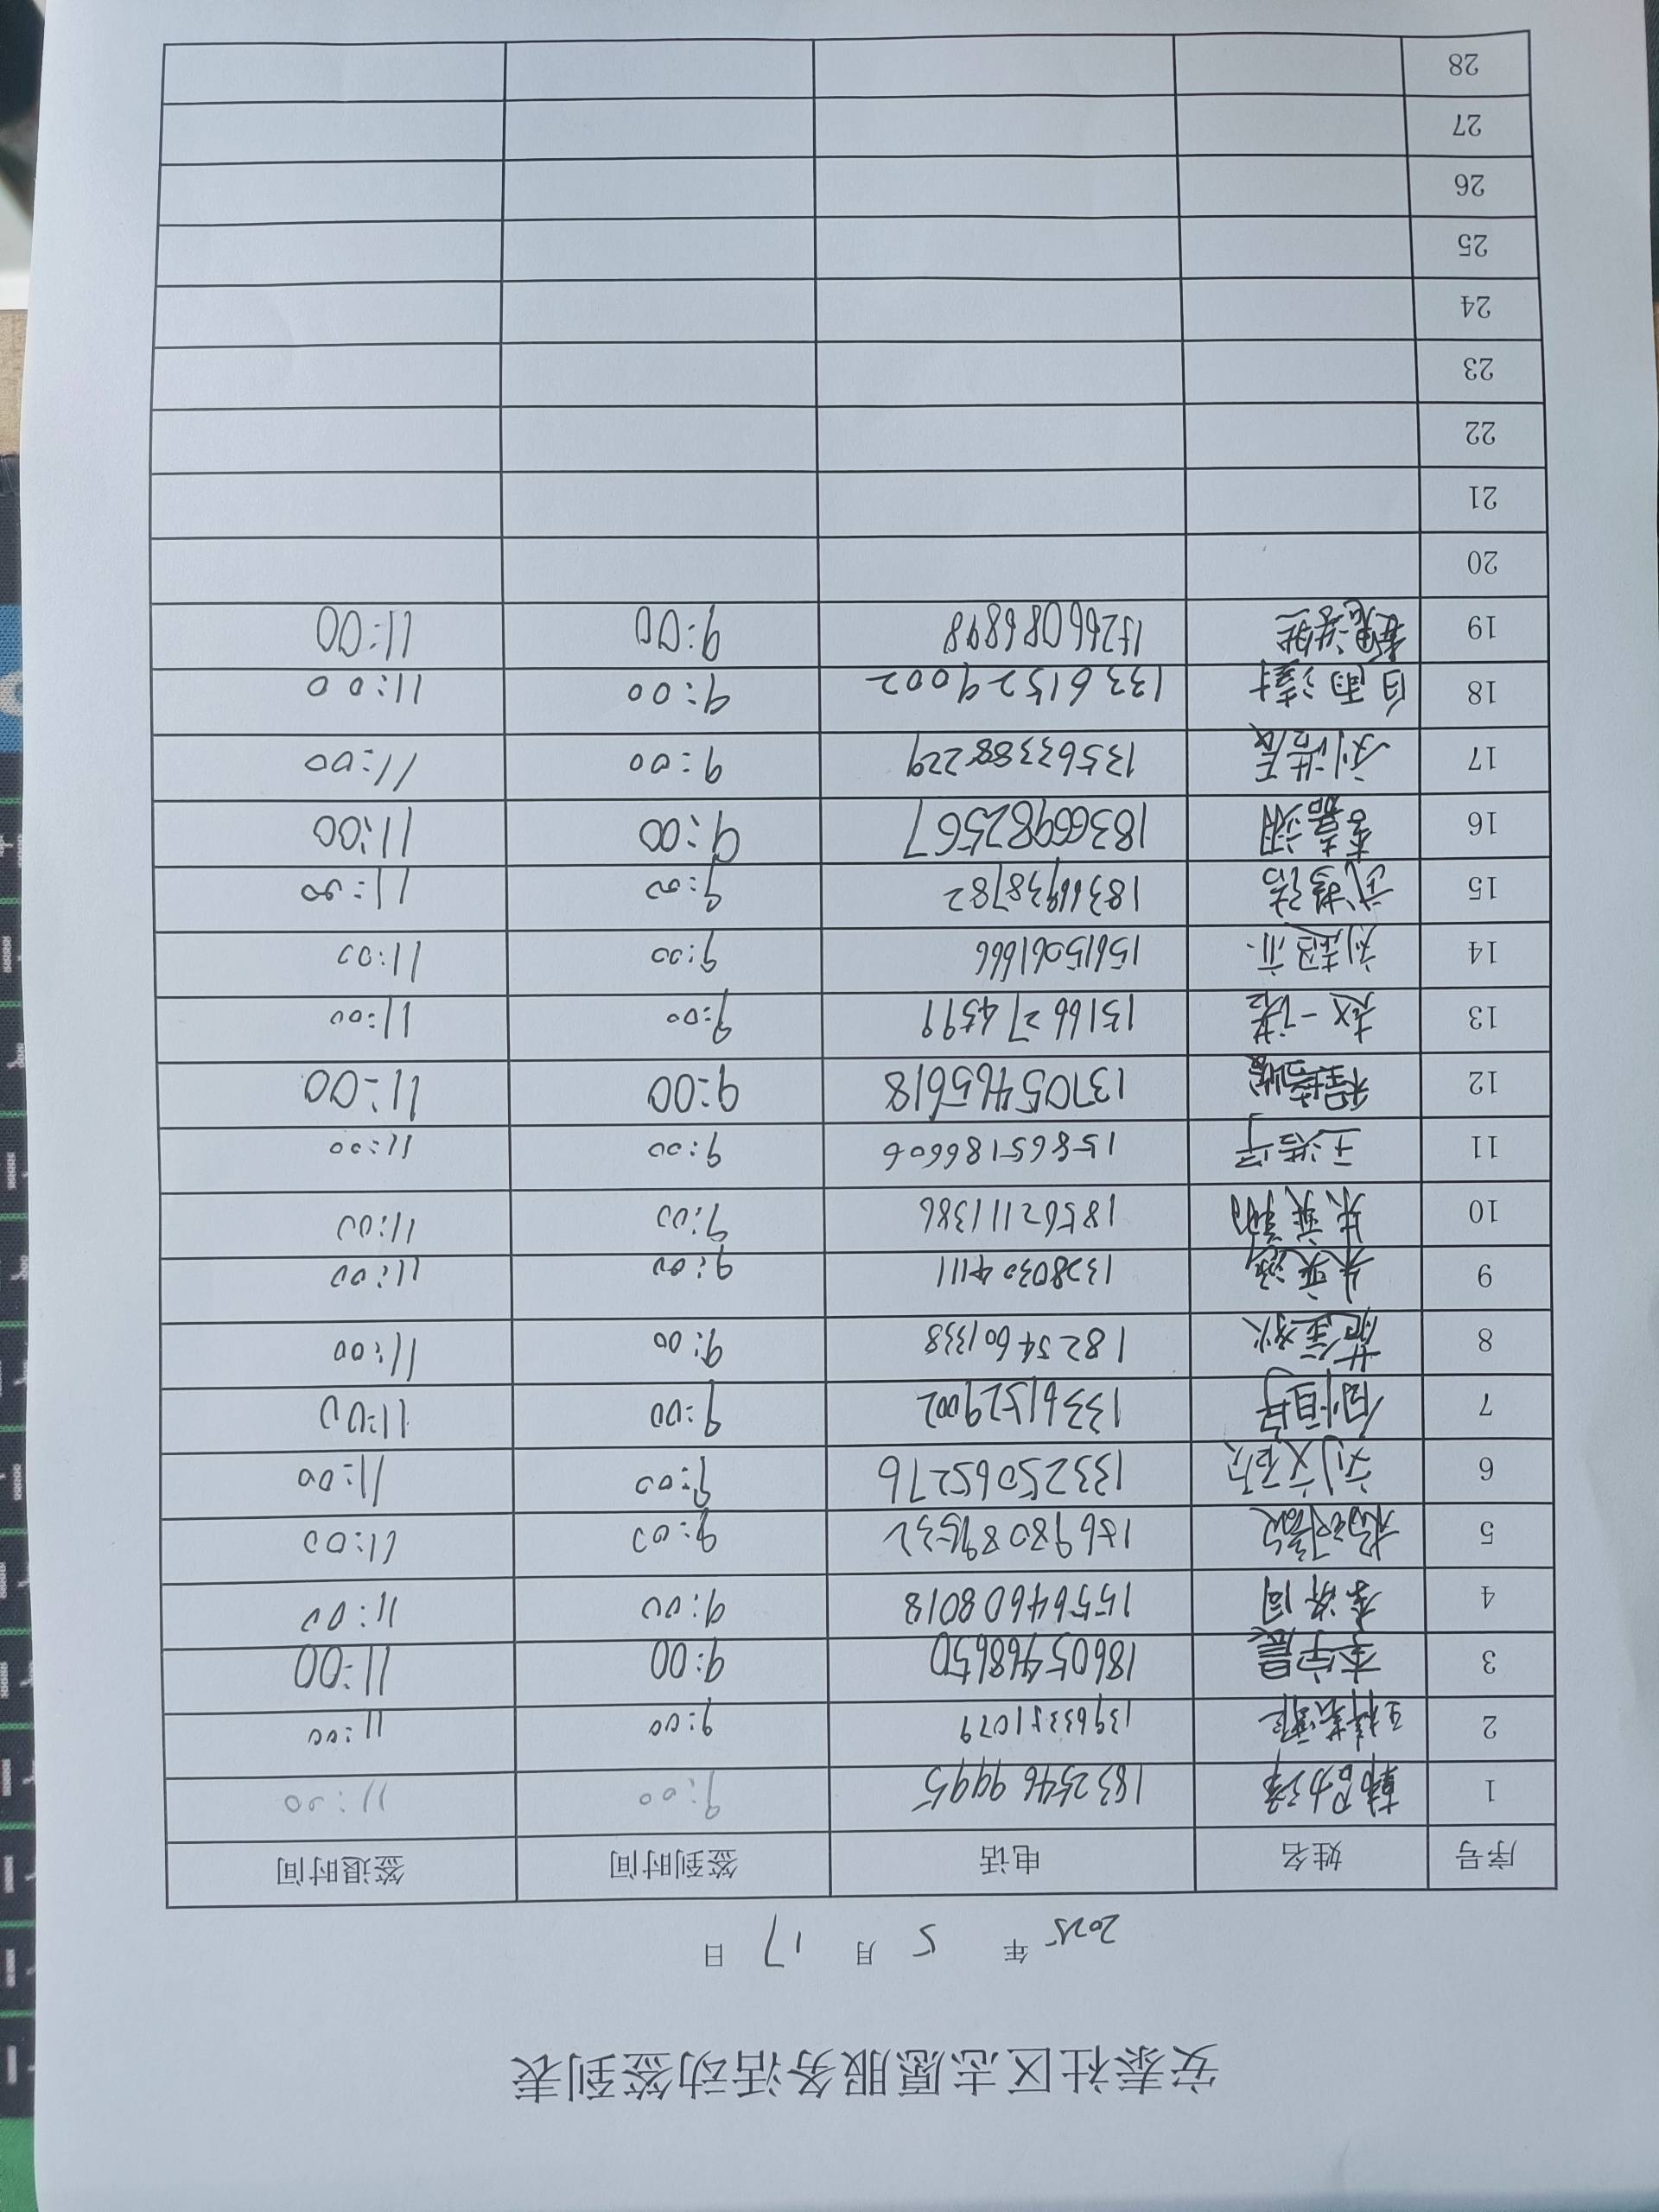 安泰社区志愿服务活动签到表
2025 年 5 月 17 日
序号 姓名 电话 签到时间 签退时间
1 18325469995 9:00 11:00
2 13963351079 9:00 11:00
3 李宇晨 18605468650 9:00 11:00
4 15564608018 9:00 11:00
5 15698089532 9:00 11:00
6 刘文硕 13325065276 9:00 11:00
7 13361529002 9:00 11:00
8 18254601338 9:00 11:00
9 13280304111 9:00 11:00
10 18562111386 9:00 11:00
11 王浩宇 15865186606 9:00 11:00
12 13705465618 9:00 11:00
13 赵一诺 15166274599 9:00 11:00
14 15615061666 9:00 11:00
15 18366938782 9:00 11:00
16 18366982567 9:00 11:00
17 刘浩辰 13563388229 9:00 11:00
18 白雨澍 13361529002 9:00 11:00
19 15266086898 9:00 11:00
20
21
22
23
24
25
26
27
28